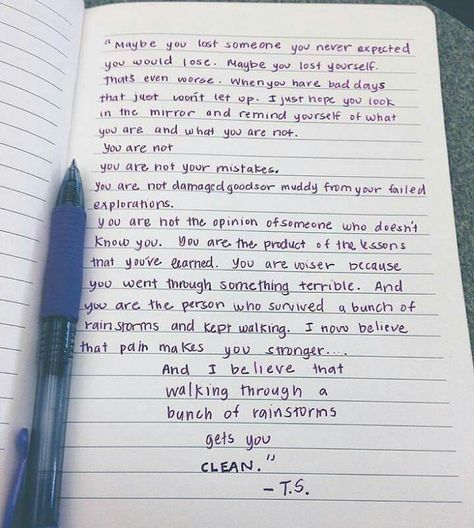 "Maybe you lost someone you never expected
you would lose. Maybe you lost yourself.
Thats even worse. When you have bad days
that just won't let up. I just hope you look
in the mirror and remind yourself of what
you are and what you are not.
You are not
you are not your mistakes.
you are not damaged goods or muddy from your failed
explorations.
you are not the opinion of someone who doesn't
know you. You are the product of the lessons
that you've learned. you are wiser because
you went through something terrible. And
you are the person who survived a bunch of
rainstorms and kept walking. I now believe
that pain makes you stronger....
And I believe that
walking through a
bunch of rainstorms
gets you
CLEAN."
- T.S.